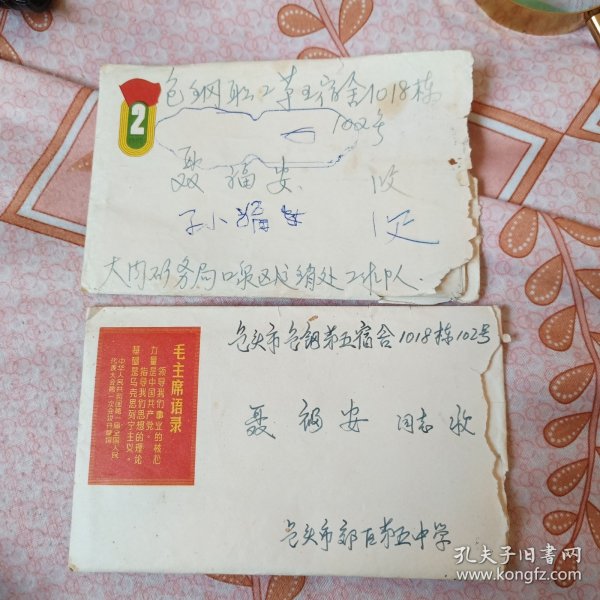 2
包钢职工第五宿舍1018栋
102号
聂福安 收
大同矿务局口泉区
毛主席语录
领导我们事业的核心
力量是中国共产党。
指导我们思想的理论
基础是马克思列宁主义。
中华人民共和国第一届全国人民
代表大会第一次会议开幕词
包头市包钢第五宿舍1018栋102号
聂福安 同志收
包头市郊区第五中学
孔夫子旧书网
www.kongfz.com